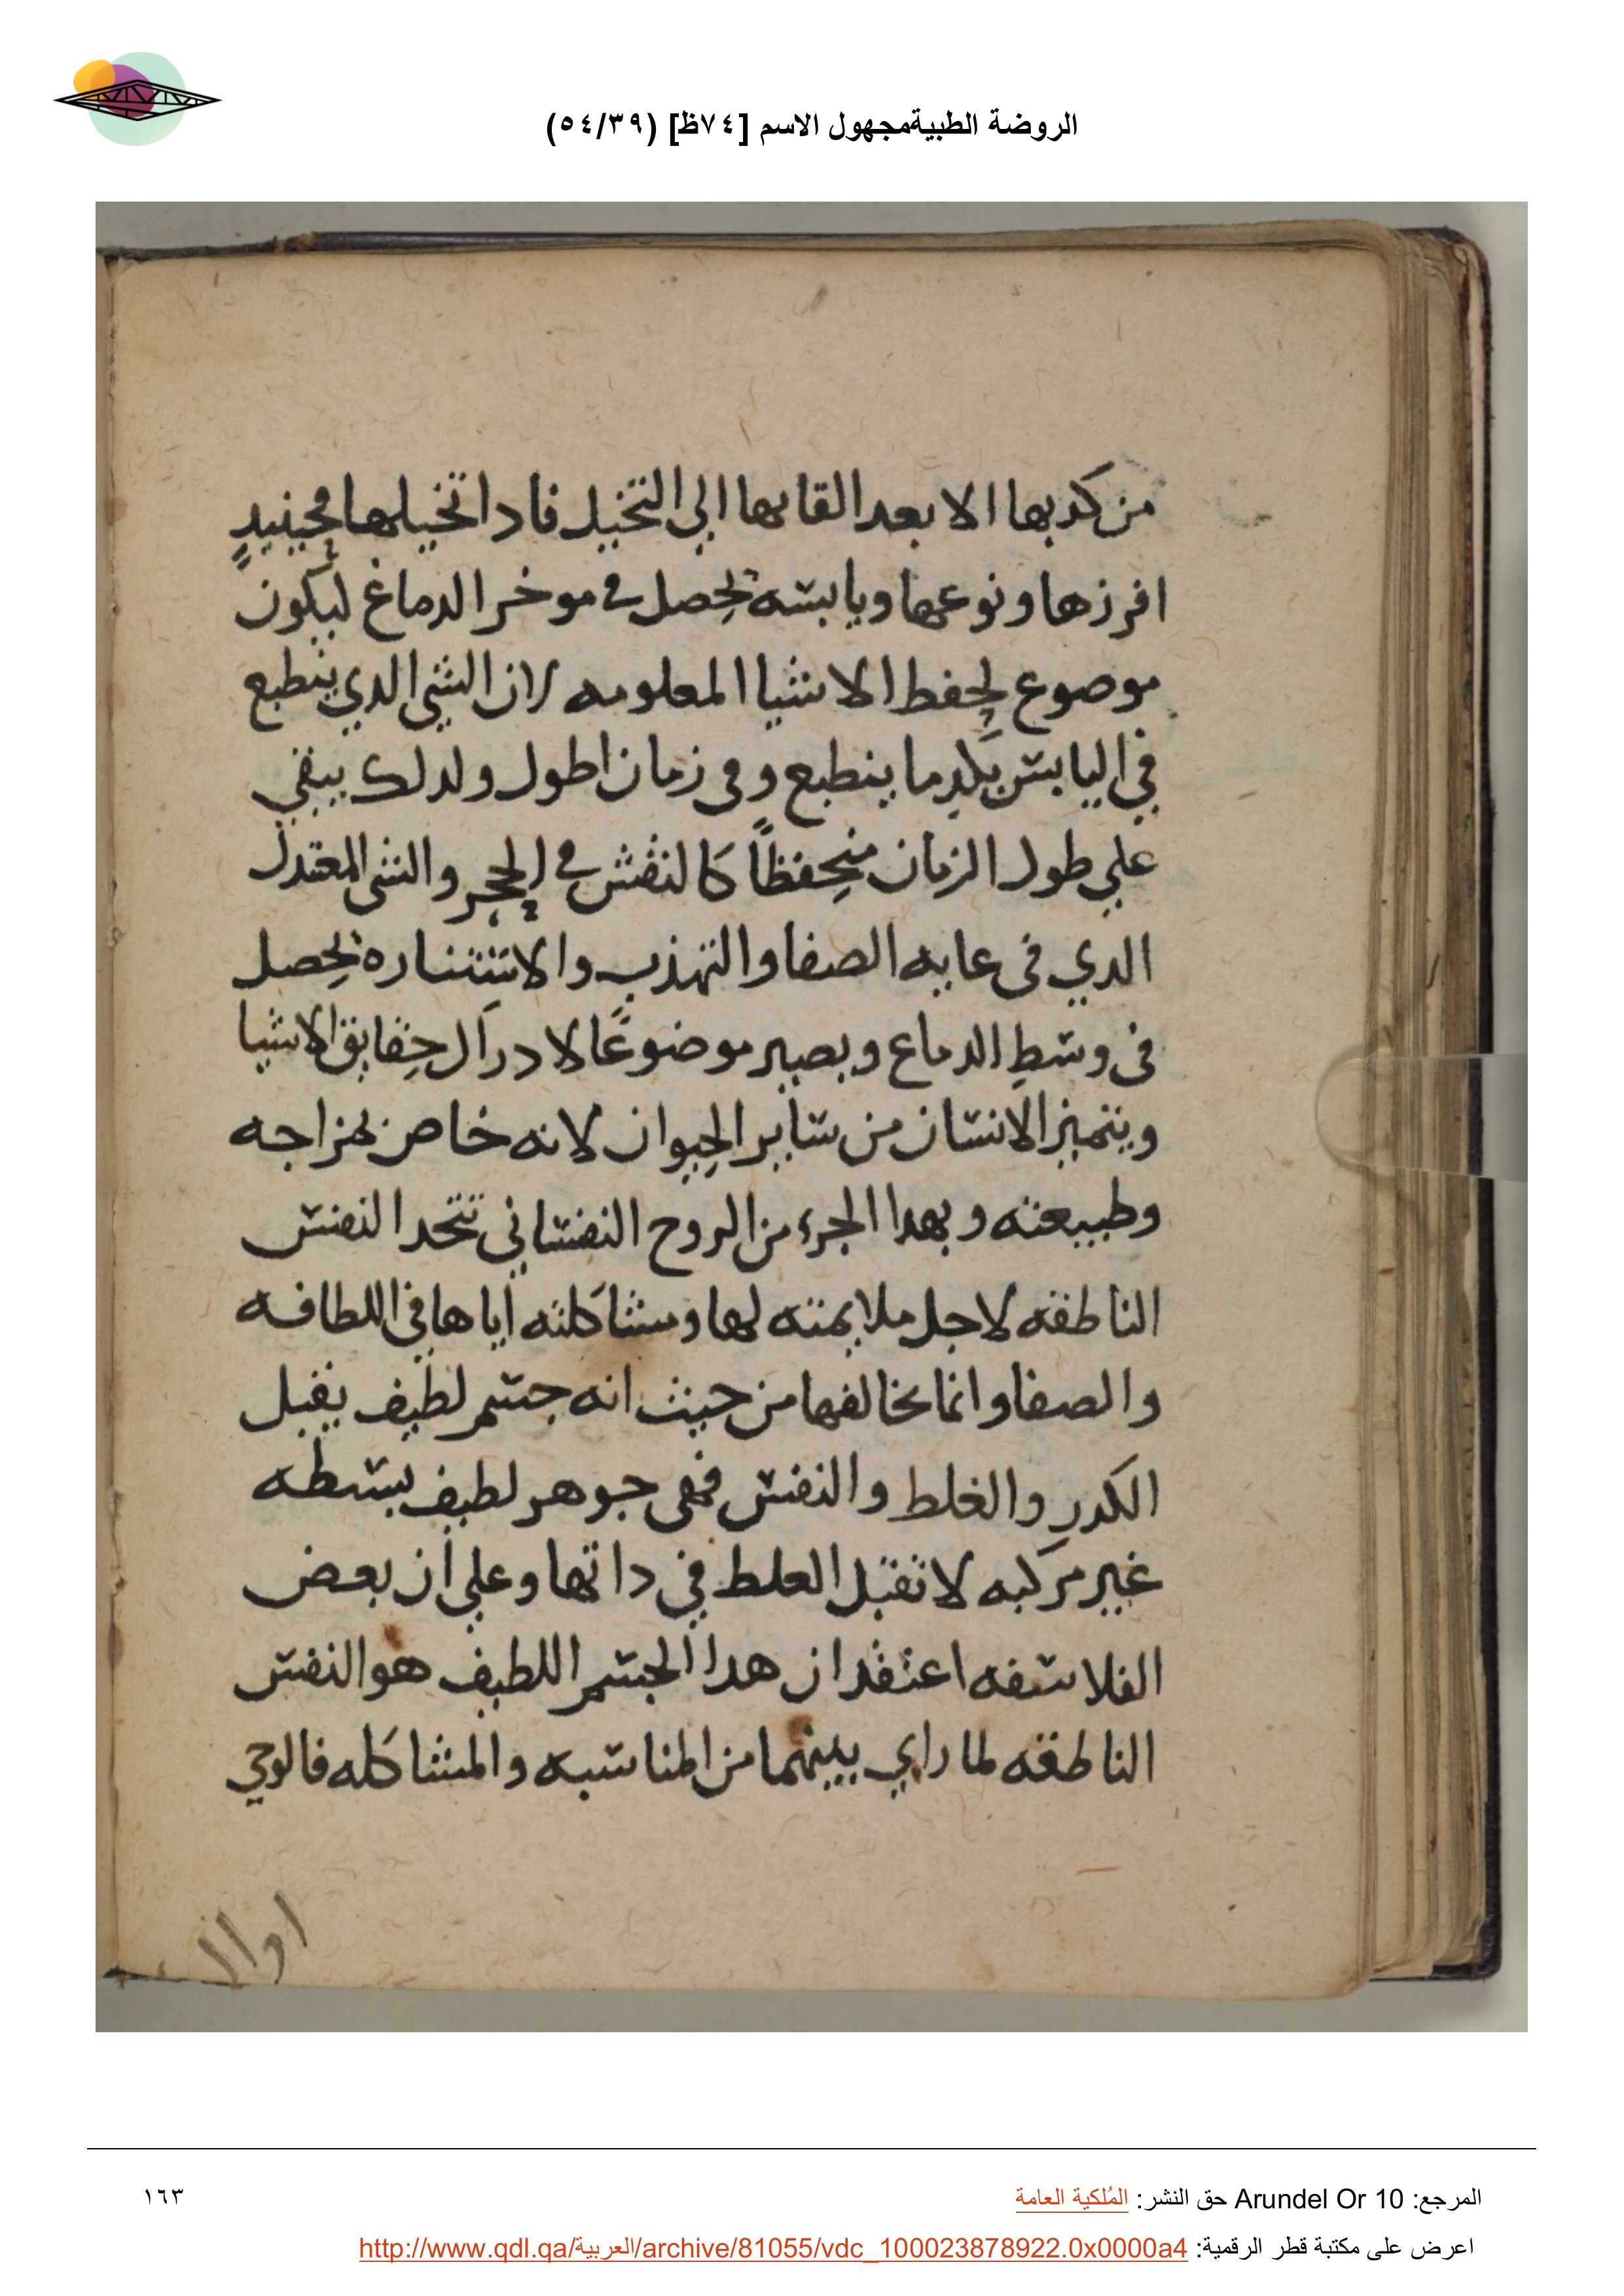 الروضة الطبيةمجهول الاسم [٧٤ظ] (٥٤/٣٩)
من كدبها الا بعد القايها الي التخيل فادا تخيلها فحينيدٍ
افرزها ونوعها ويابسه تحصل في موخر الدماغ ليكون
موصوع لحفط الاشيا المعلومه لان الشي الدي ينطبع
في اليابس بكدِ ما ينطبع وفى زمان اطول ولدلك يبقي
علي طول الزمان منحفظاً كالنقش في الحجر والشى المعتدل
الدي فى عايه الصفا والتهذيب والاستناره تحصل
فى وسط الدماع ويصير موضوعًا لادراك حقايق الاشيا
ويتميز الانسان من ساير الحيوان لانه خاص بمزاجه
وطبيعته وبهدا الجزء من الروح النفساني تتحد النفس
الناطقه لاجل ملايمته لها ومشاكلته اياها في اللطافه
والصفا وانما يخالفها من حيث انه جسم لطيف يقبل
الكدر والغلط والنفس فهى جوهر لطيف بسطه
غير مركبه لا تقبل العلط في داتها وعلي ان بعض
الفلاسفه اعتقد ان هدا الجسم اللطيف هو النفس
الناطقه لما راي بينهما من المناسبه والمشاكله فالوحي
اوالا
المرجع: Arundel Or 10 حق النشر: المُلكية العامة
١٦٣
اعرض على مكتبة قطر الرقمية: http://www.qdl.qa/العربية/archive/81055/vdc_100023878922.0x0000a4